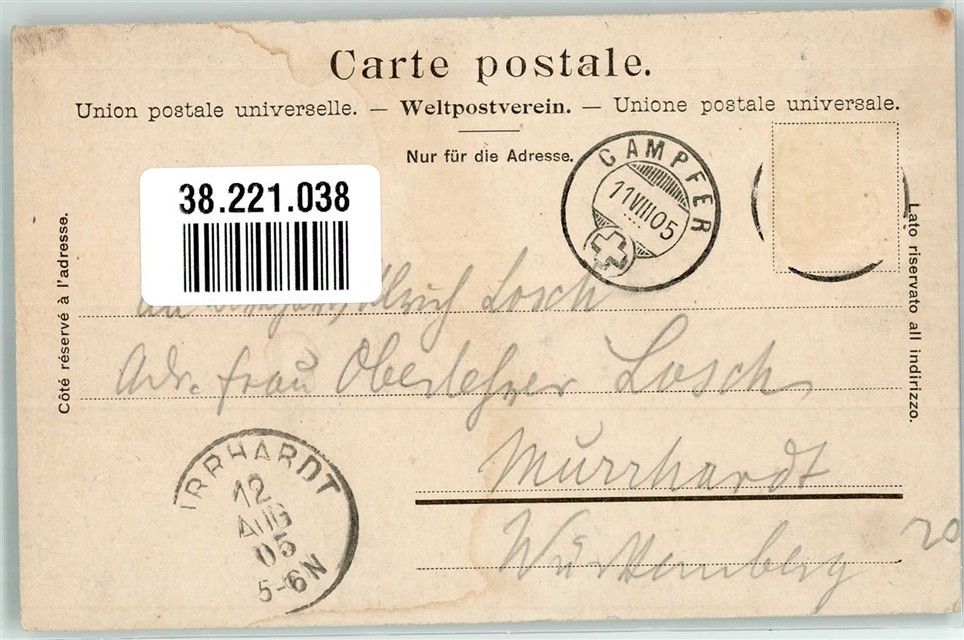 Carte postale.
Union postale universelle. — Weltpostverein. — Unione postale universale.
Nur für die Adresse.
CAMPFER
11 VIII 05
38.221.038
Côté réservé à l'adresse.
Lato riservato all indirizzo.
An Ulrich Losch
Adr. Frau Oberlehrer Losch
Murrhardt
Württemberg
20
URRHARDT
12
AUG
05
5-6N